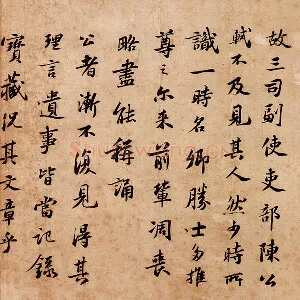 故三司副使吏部陳公
軾不及見其人然少時所
識一時名卿勝士多推
尊之尔来前輩凋喪
略盡能稱誦
公者漸不復見得其
理言遺事皆當記錄
寳藏况其文章乎